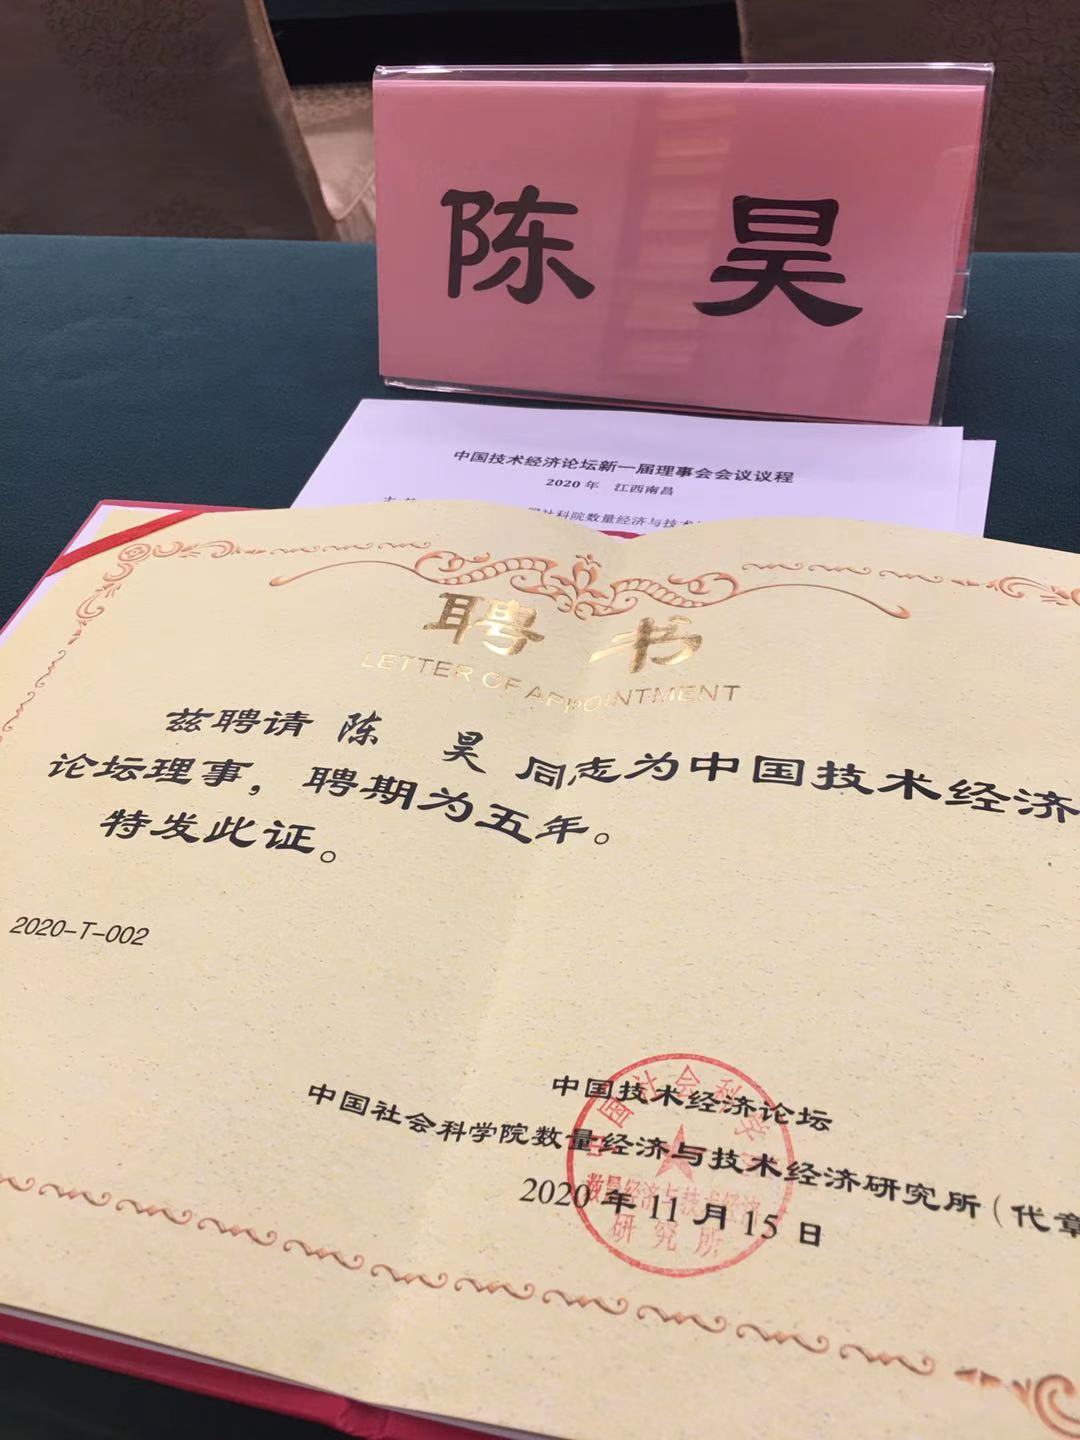 陈 昊
中国技术经济论坛新一届理事会会议议程
2020年 江西南昌
国社科院数量经济与技术
聘书
LETTER OF APPOINTMENT
兹聘请 陈 昊 同志为中国技术经济
论坛理事，聘期为五年。
特发此证。
2020-T-002
中国技术经济论坛
中国社会科学院数量经济与技术经济研究所(代章
2020年11月15日
中国社会科学
数量经济与技术经济
研究所